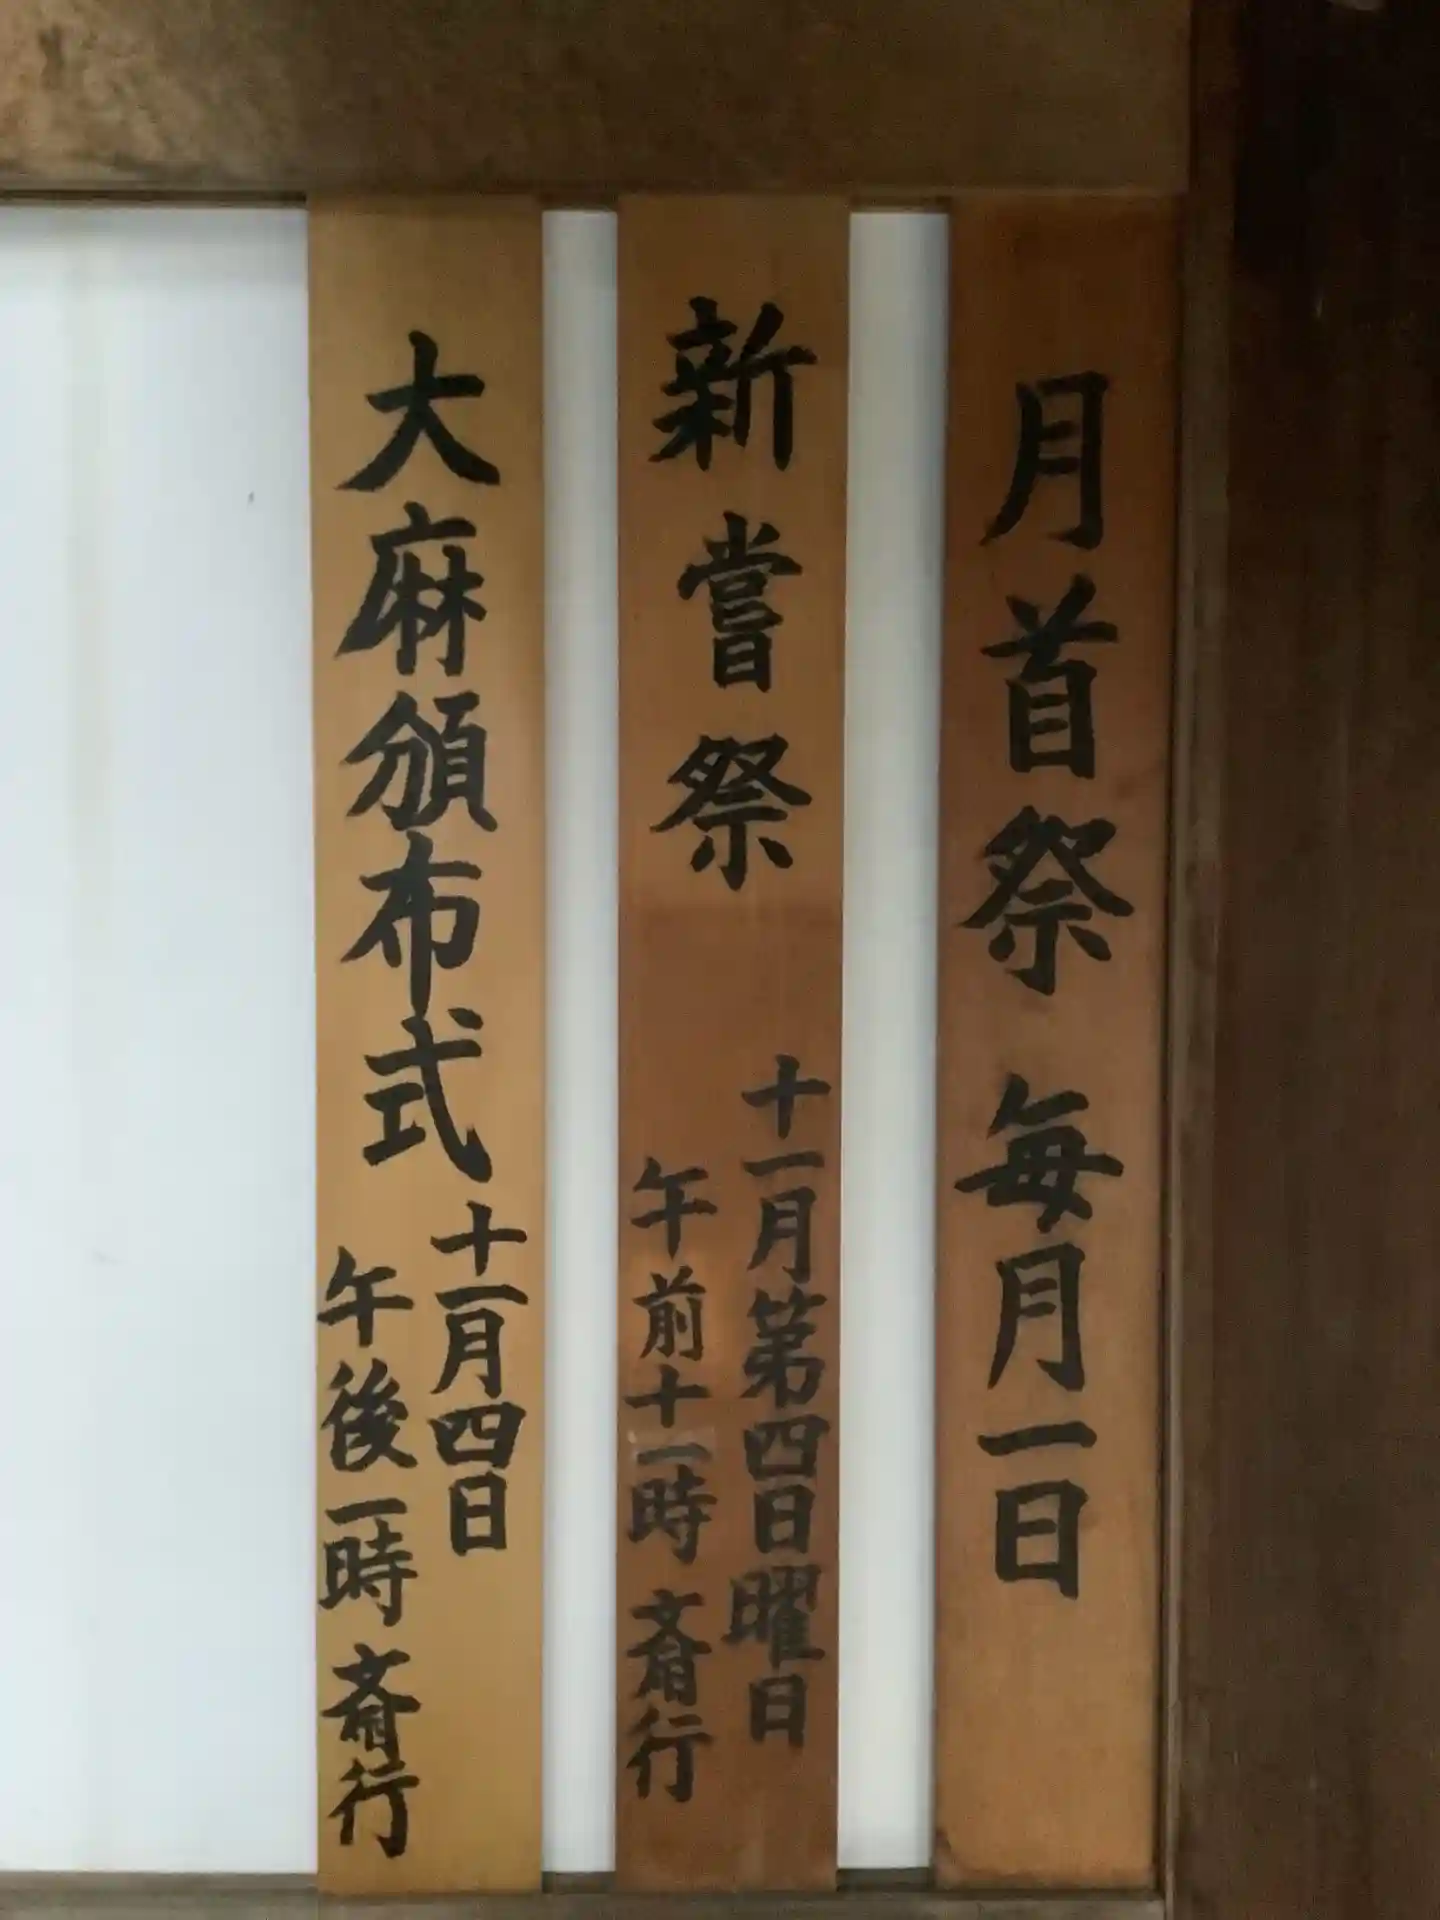 月首祭 毎月一日
新嘗祭
十一月第四日曜日
午前十一時 斎行
大麻頒布式
十一月四日
午後一時 斎行